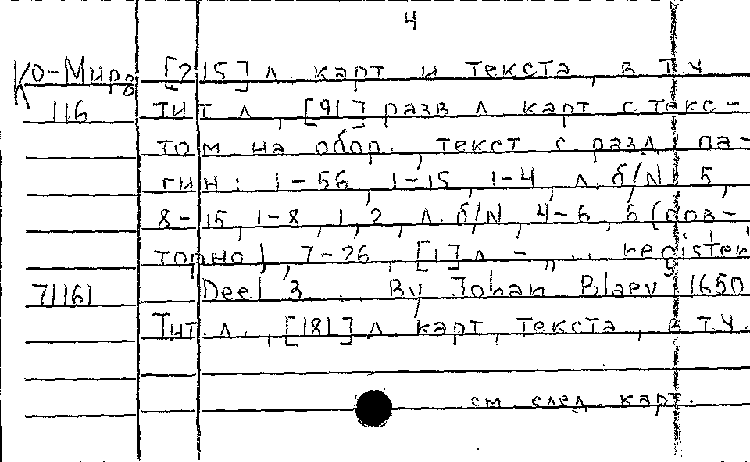 4
Ко-Мир [215] л. карт и текста, в т.ч.
116 тит. л., [91] разв. л. карт с текс-
том на обор., текст с разд. па-
гин: 1-56, 1-15, 1-4, л. б/N, 5,
8-15, 1-8, 1, 2, л. б/N, 4-6, 5 (пов-
торно), 7-26, [1] л. - „ ... Register
71161 Deel 3 ... By Johan Blaev 1650
Тит. л., [181] л. карт, текста, в т.ч.
см след. карт.